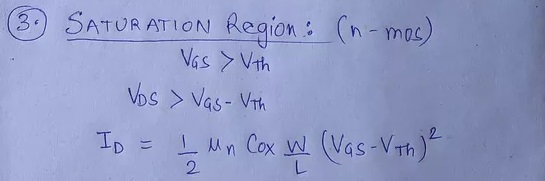 3. SATURATION Region: (n-mos)
VGS > VTh
VDS > VGS - VTh
ID = 1/2 μn Cox W/L (VGS - VTh)²